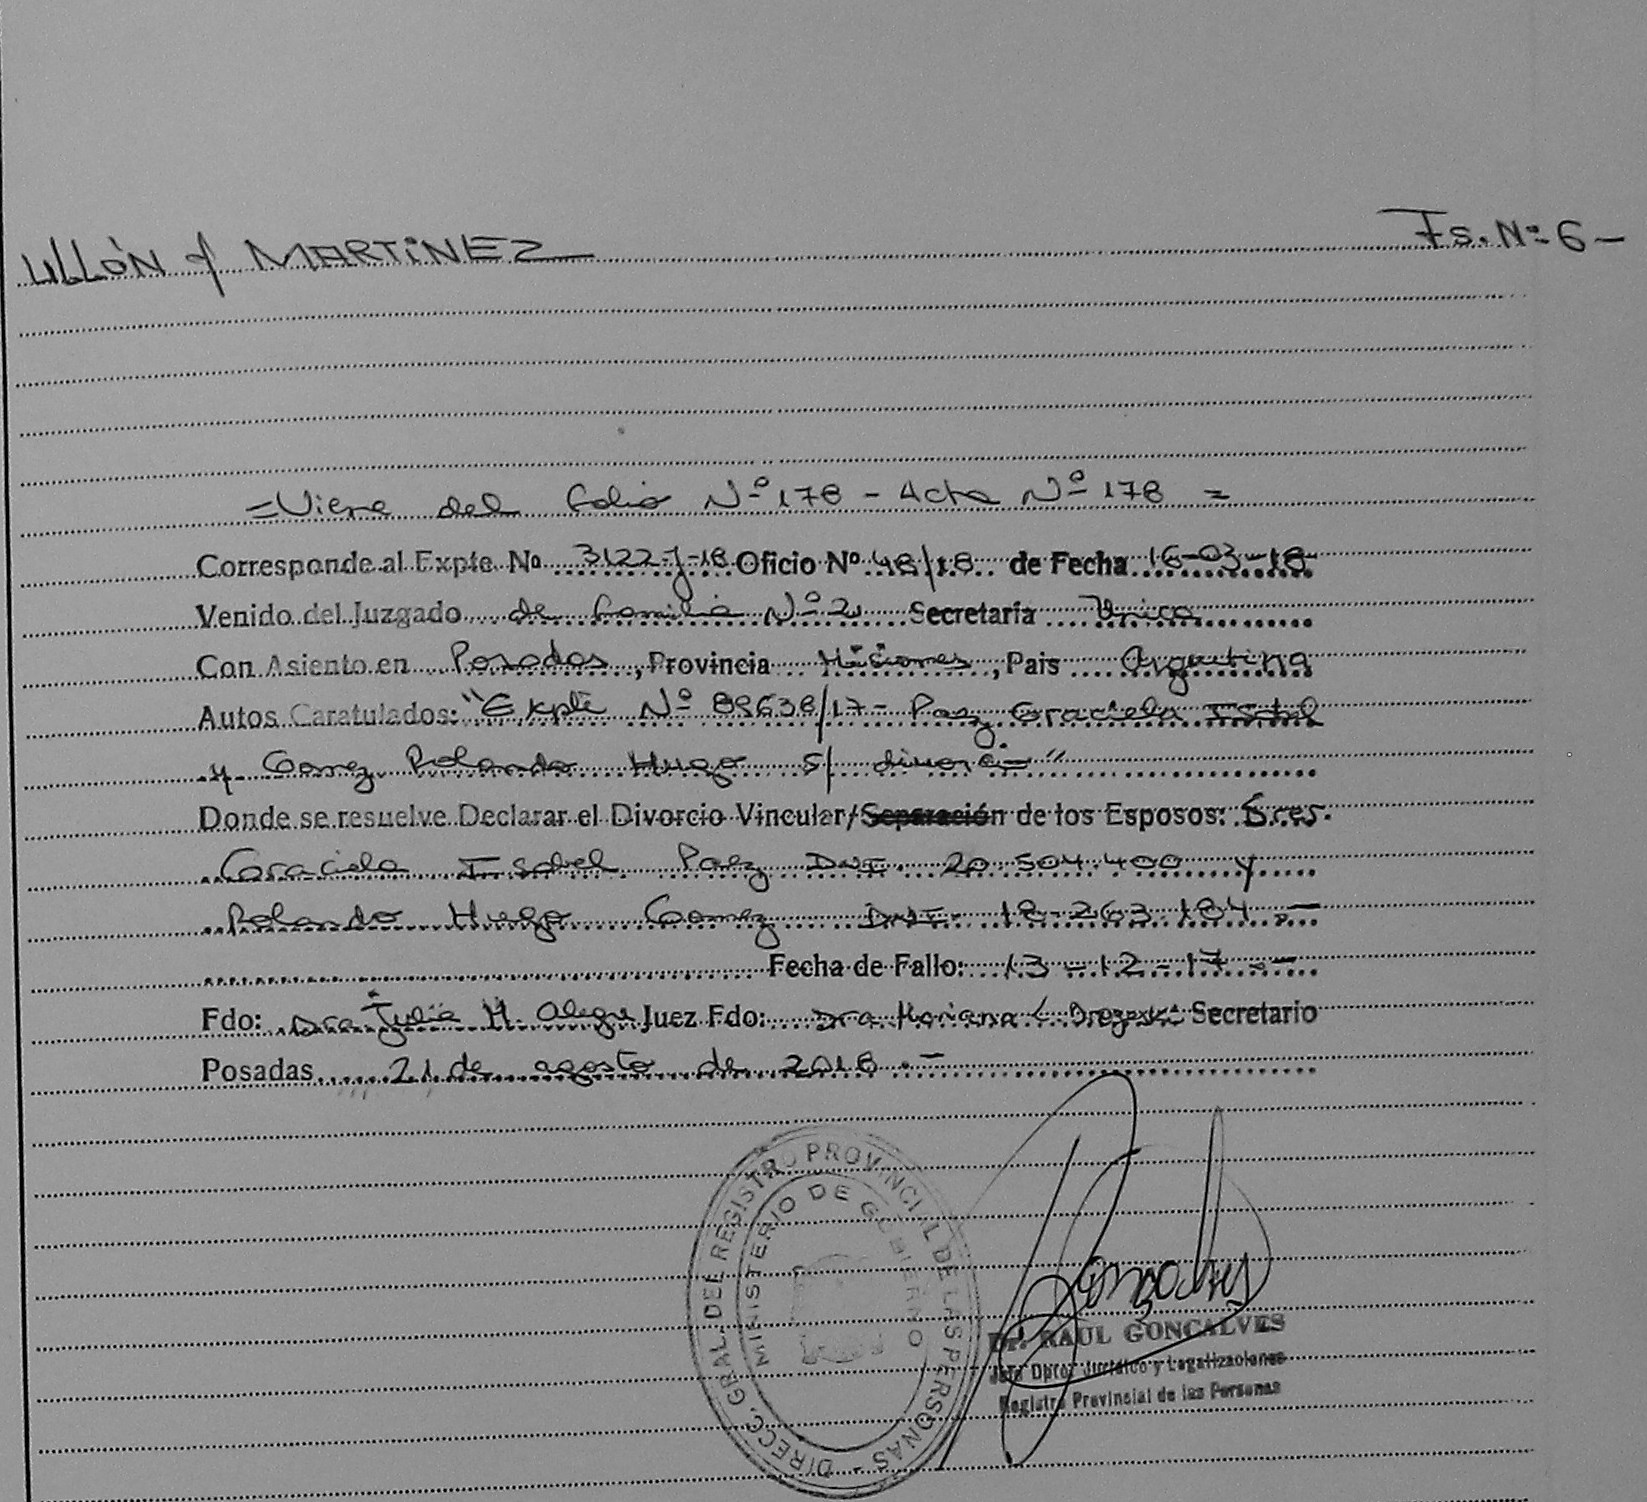 ULLÓN y MARTINEZ Fs. Nº 6-
= Viene del folio Nº 178 - Acta Nº 178 =
Corresponde al Expte. Nº 3122-J-18 Oficio Nº 48/18 de Fecha 16-03-18
Venido del Juzgado de Familia Nº 2 Secretaría Unica
Con Asiento en Posadas, Provincia Misiones, Pais Argentina
Autos Caratulados: "Expte Nº 89638/17- Paez Graciela Isabel
y Gomez Rolando Hugo s/ divorcio"
Donde se resuelve Declarar el Divorcio Vincular/Separación de los Esposos: Sres.
Graciela Isabel Paez DNI. 20.504.400 y
Rolando Hugo Gomez DNI. 18.263.184.-
Fecha de Fallo: 13-12-17.-
Fdo: Dra Julia H. Alegre Juez Fdo: Dra Mariana Secretario
Posadas 21 de agosto de 2018.-
DIRECC. GRAL. DEL REGISTRO PROVINCIAL DE LAS PERSONAS -
MINISTERIO DE GOBIERNO
Dr. RAUL GONÇALVES
Jefe Dpto. Jurídico y Legalizaciones
Registro Provincial de las Personas